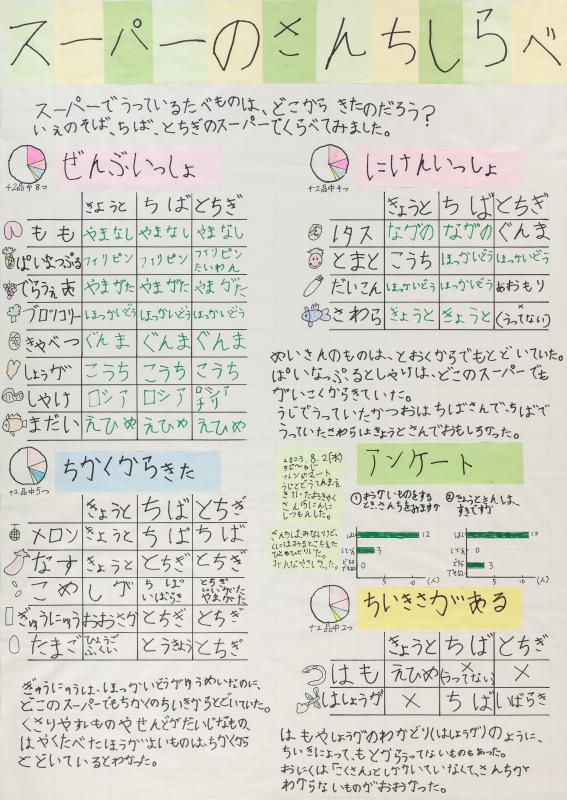 スーパーのさんちしらべ
スーパーでうっているたべものは、どこから きたのだろう？
いえのそば、ちば、とちぎのスーパーでくらべてみました。
ぜんぶいっしょ
きょうと ちば とちぎ
もも やまなし やまなし やまなし
ぱいなっぷる フィリピン フィリピン フィリピン たいわん
でらうぇあ やまがた やまがた やまがた
ブロッコリー ほっかいどう ほっかいどう ほっかいどう
きゃべつ ぐんま ぐんま ぐんま
しょうが こうち こうち こうち
しゃけ ロシア ロシア ロシア チリ
まだい えひめ えひめ えひめ
にけんいっしょ
きょうと ちば とちぎ
レタス ながの ながの ぐんま
とまと こうち ほっかいどう ほっかいどう
だいこん ほっかいどう ほっかいどう あおもり
さわら きょうと きょうと × (うってない)
めいさんのものは、とおくからでもとどいていた。
ぱいなっぷるとしゃけは、どこのスーパーでも
がいこくからきていた。
うじでうっていたかつおはちばさんで、ちばで
うっていたさわらはきょうとさんでおもしろかった。
ちかくからきた
きょうと ちば とちぎ
メロン きょうと ちば ちば
なす きょうと とちぎ とちぎ
こめ しが ちば いばらき とちぎ にいがた やまがた
ぎゅうにゅう おおさか とちぎ とちぎ
たまご ひょうご ふくい とうきょう とちぎ
ぎゅうにゅうは、ほっかいどうがゆうめいなのに、
どこのスーパーでもちかくのちいきからとどいていた。
くさりやすいものやせんどがだいじなもの、
はやくたべたほうがよいものは、ちかくから
とどいているとわかった。
アンケート
2023.8.2(水)
①おかいものをする
とき、さんちをみますか
②きょうとさんは、
すきですか
はい 12
いいえ 3
どちらでもない 0
5 10 (人)
はい 12
いいえ 0
どちらでもない 3
5 10 (人)
ちいきさがある
きょうと ちば とちぎ
はも えひめ × (うってない) ×
はしょうが × ちば いばらき
はもやしょうがのわかどり(はしょうが)のように、
ちいきによって、もとからうってないものもあった。
おにくは「こくさん」としかかいていなくて、さんちが
わからないものがおおかった。